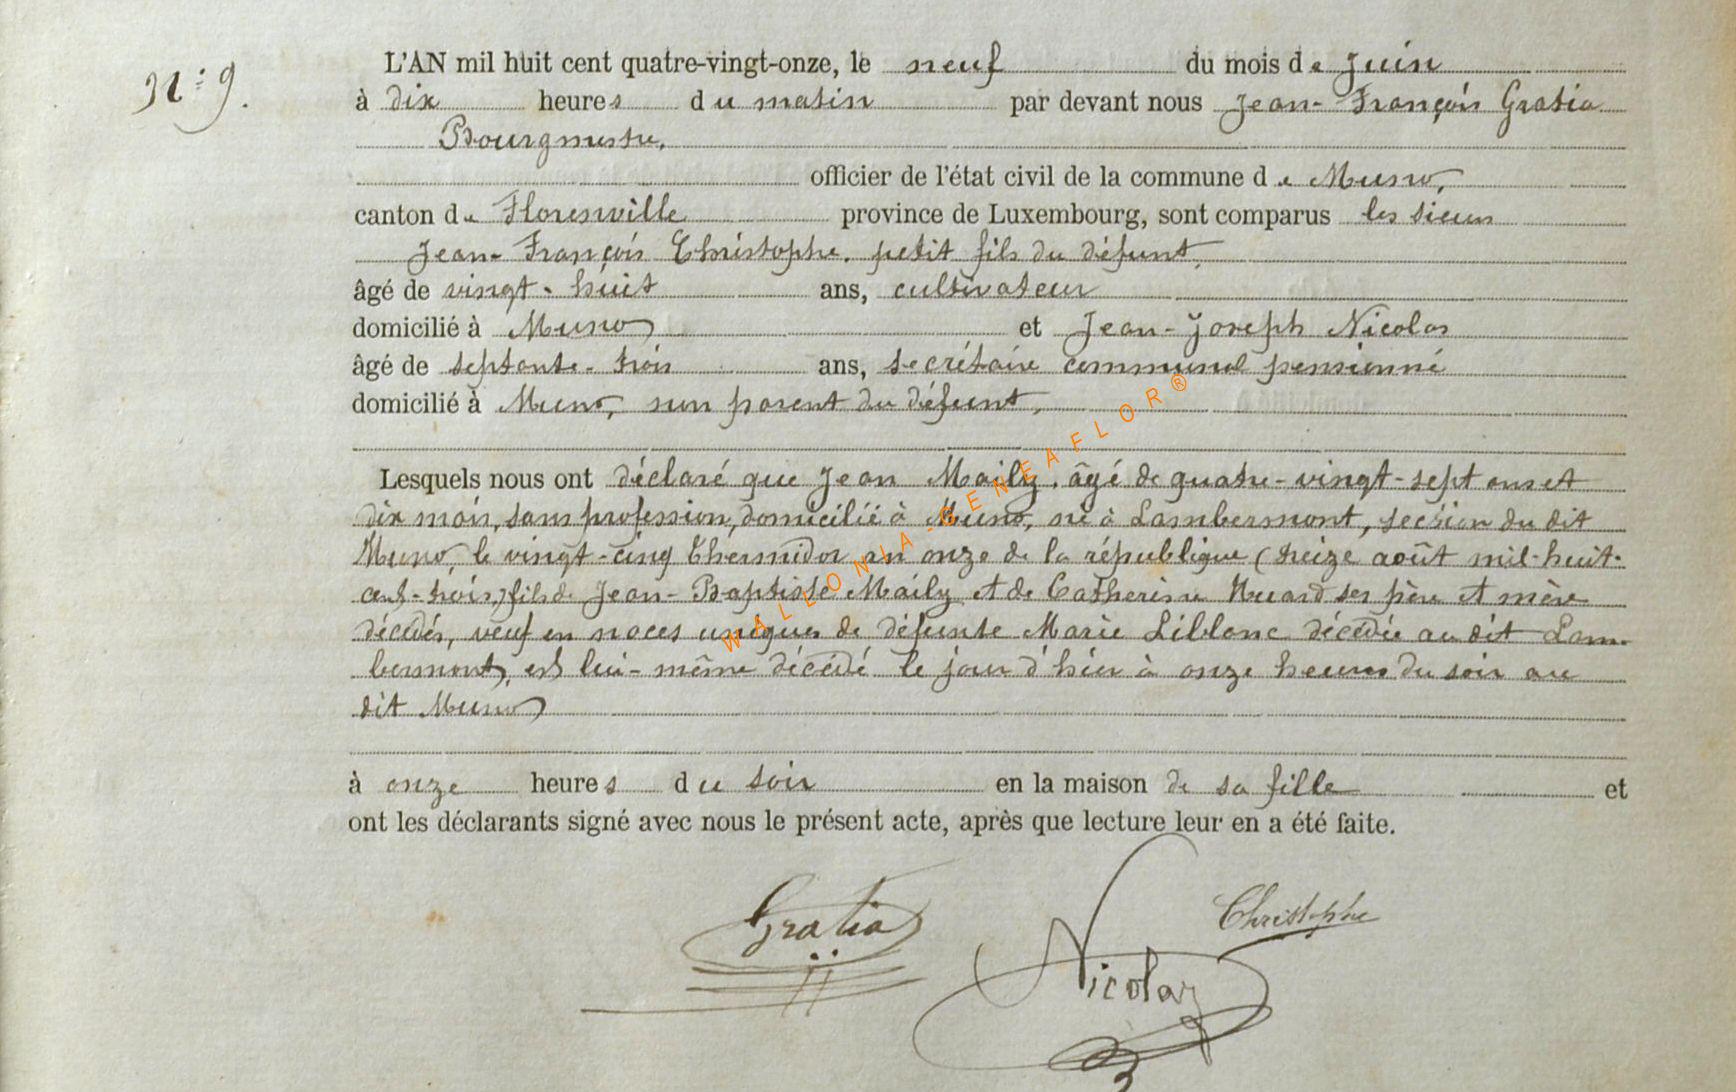 N° 9.
L'AN mil huit cent quatre-vingt-onze, le neuf du mois de Juin
à dix heures du matin par devant nous Jean-François Gratia
Bourgmestre,
officier de l'état civil de la commune de Muno,
canton de Florenville province de Luxembourg, sont comparus les sieurs
Jean-François Christophe, petit fils du défunt,
âgé de vingt-huit ans, cultivateur
domicilié à Muno et Jean-Joseph Nicolas
âgé de septante-trois ans, secrétaire communal pensionné
domicilié à Muno, non parent du défunt,
Lesquels nous ont déclaré que Jean Maily, âgé de quatre-vingt-sept ans et
dix mois, sans profession, domicilié à Muno, né à Lambermont, section du dit
Muno, le vingt-cinq Thermidor an onze de la république (treize août mil-huit-
cent-trois,) fils de Jean-Baptiste Maily et de Catherine Huard ses père et mère
décédés, veuf en noces uniques de défunte Marie Liblanc décédée au dit Lam-
bermont, est lui-même décédé le jour d'hier à onze heures du soir au
dit Muno
à onze heures du soir en la maison de sa fille et
ont les déclarants signé avec nous le présent acte, après que lecture leur en a été faite.
Gratia
Nicolas
Christophe
WALLONIA-GENEAFLOR®